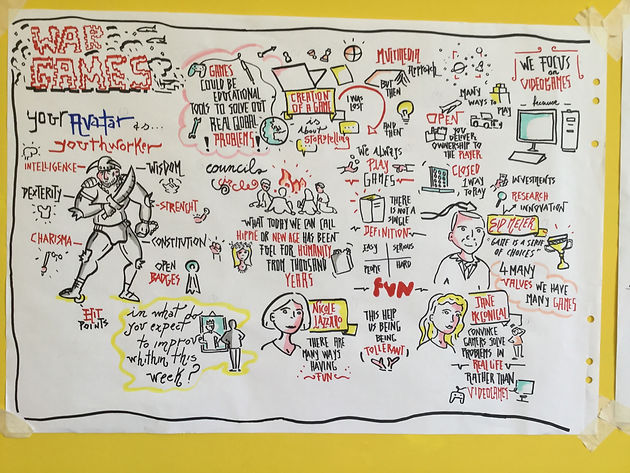 WAR
GAMES
your Avatar
as...
youthworker
INTELLIGENCE
WISDOM
DEXTERITY
STRENGHT
CHARISMA
CONSTITUTION
OPEN
BADGES
HIT
POINTS
in what do
you expect
to improve
whithin this
week?
GAMES
COULD BE
EDUCATIONAL
TOOLS TO SOLVE OUT
REAL GLOBAL
PROBLEMS!
CREATION
OF A GAME
is
ABOUT
STORYTELLING
I WAS
LOST
MULTIMEDIA
APPROACH
BUT
THEN
AND
THEN
councils
WHAT TODAY WE CAN CALL
HIPPIE OR NEW AGE HAS BEEN
FUEL FOR HUMANITY
FROM THOUSAND
YEARS
WE ALWAYS
PLAY
GAMES
THERE
IS NOT A
SINGLE
DEFINITION
EASY
SERIOUS
PEOPLE
HARD
FUN
MANY
WAYS TO
PLAY
OPEN
YOU
DELIVER
OWNERSHIP TO
THE PLAYER
CLOSED
1 WAY
TO PLAY
WE FOCUS
on
VIDEOGAMES
because
INVESTMENTS
RESEARCH
INNOVATION
SID MEIER
GAME IS A SERIE
OF CHOICES
4 MANY
VALUES WE HAVE
MANY GAMES
NICOLE
LAZZARO
THERE ARE
MANY WAYS
HAVING
FUN
THIS HELP
US BEING
BEING
TOLLERANT
JANE
McGONICAL
CONVINCE
GAMERS SOLVE
PROBLEMS IN
REAL LIFE
RATHER THAN
VIDEOGAMES